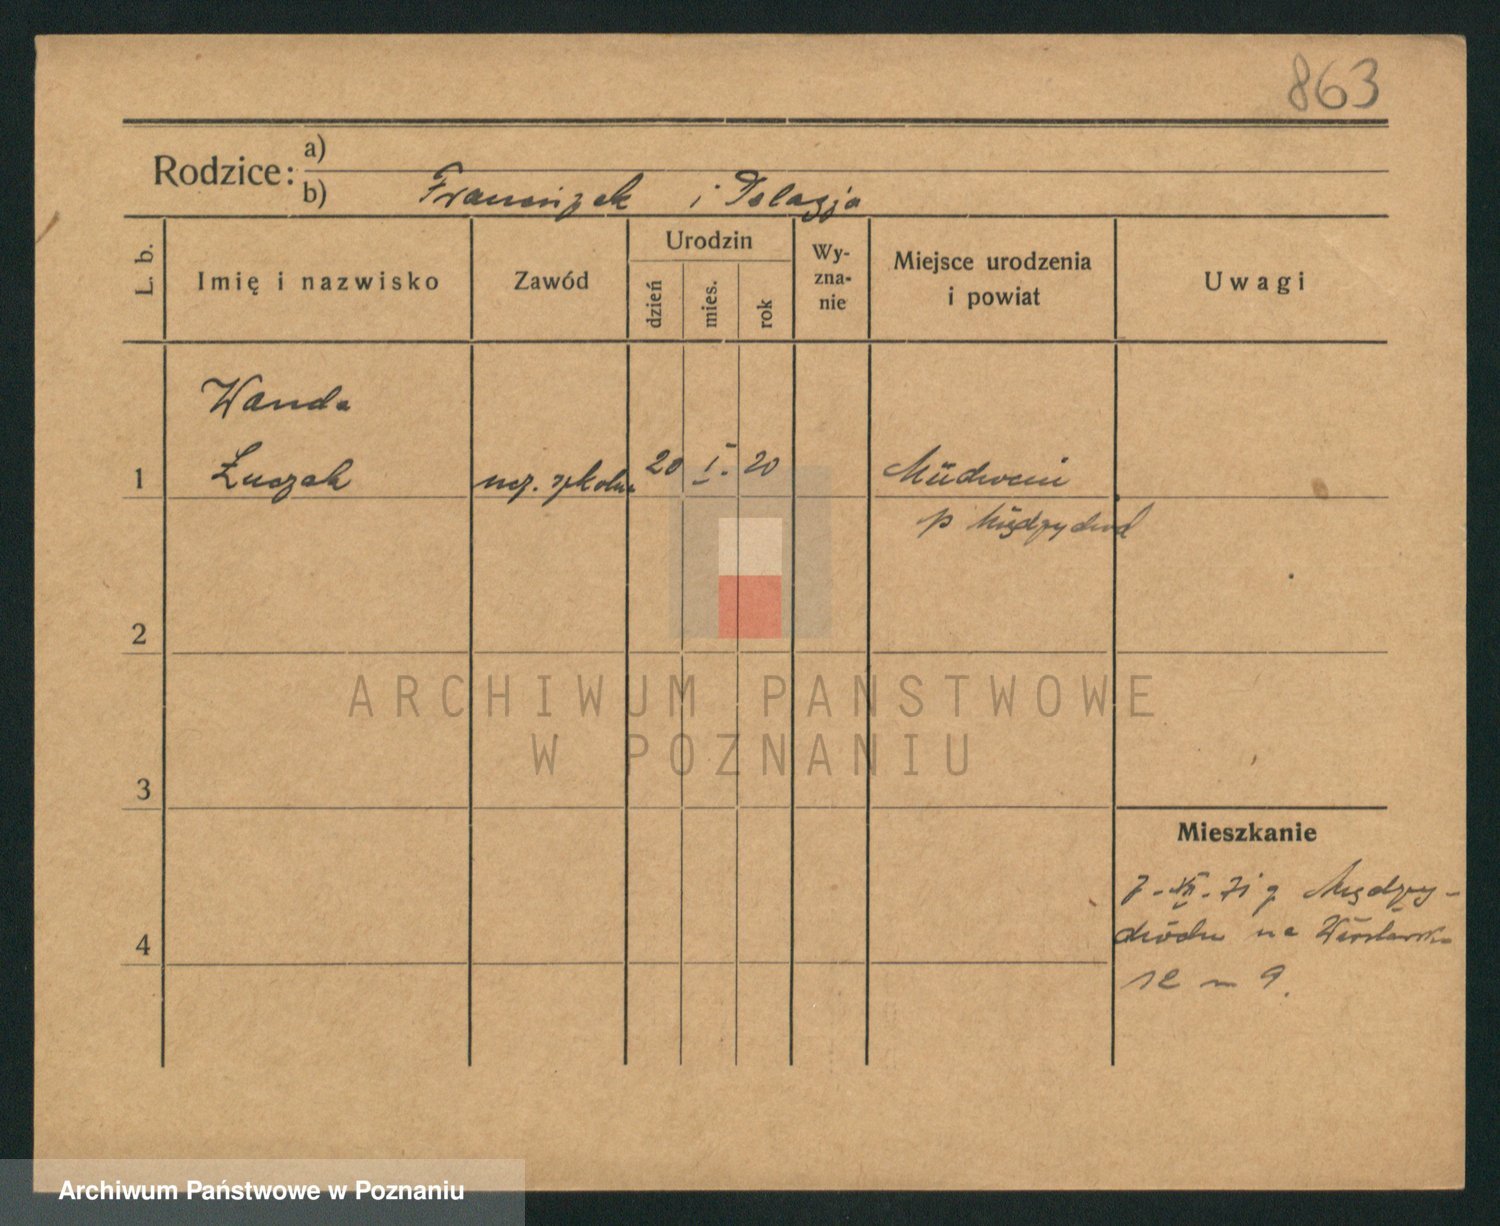 863
Rodzice:
a)
b) Franciszek i Pelagja
L. b.
Imię i nazwisko
Zawód
Urodzin
dzień
mies.
rok
Wy-
zna-
nie
Miejsce urodzenia
i powiat
Uwagi
Wanda
1 Łuczak ucz. szkolna 20 I. 20
p Międzychód
2
3
4
Mieszkanie
7. XII. 31 z Między-
chodu na
12 m 9.
ARCHIWUM PAŃSTWOWE
W POZNANIU
Archiwum Państwowe w Poznaniu